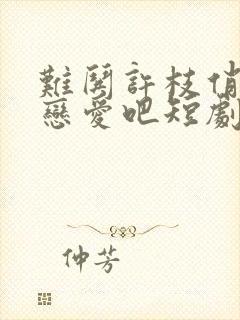 難鬨許枝俏
戀愛吧短劇
仲芳